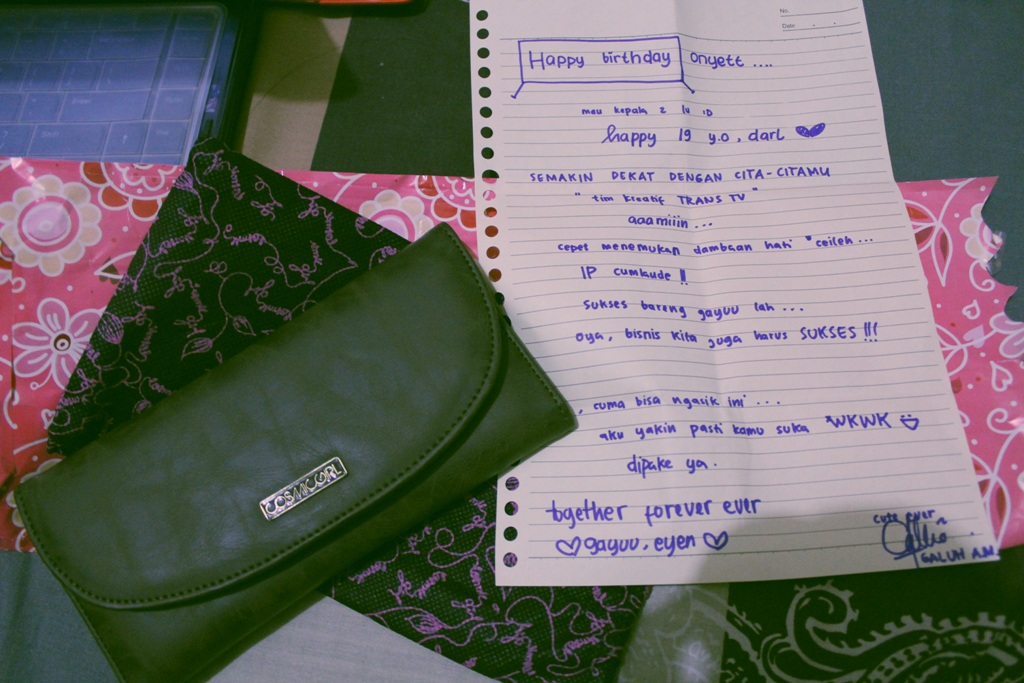 No.
Date
Happy birthday onyett ....
mau kepala 2 lu :D
happy 19 y.o, darl
SEMAKIN DEKAT DENGAN CITA-CITAMU
"tim kreatif TRANS TV"
aaamiiin...
cepet menemukan dambaan hati *ceileh...
IP cumlaude !!
sukses bareng gayuu lah ...
oya, bisnis kita juga harus SUKSES !!!
, cuma bisa ngasik ini ...
aku yakin pasti kamu suka WKWK
dipake ya.
together forever ever
gayuu, eyen
cute ever
GALUH A.M.
COSMICGIRL